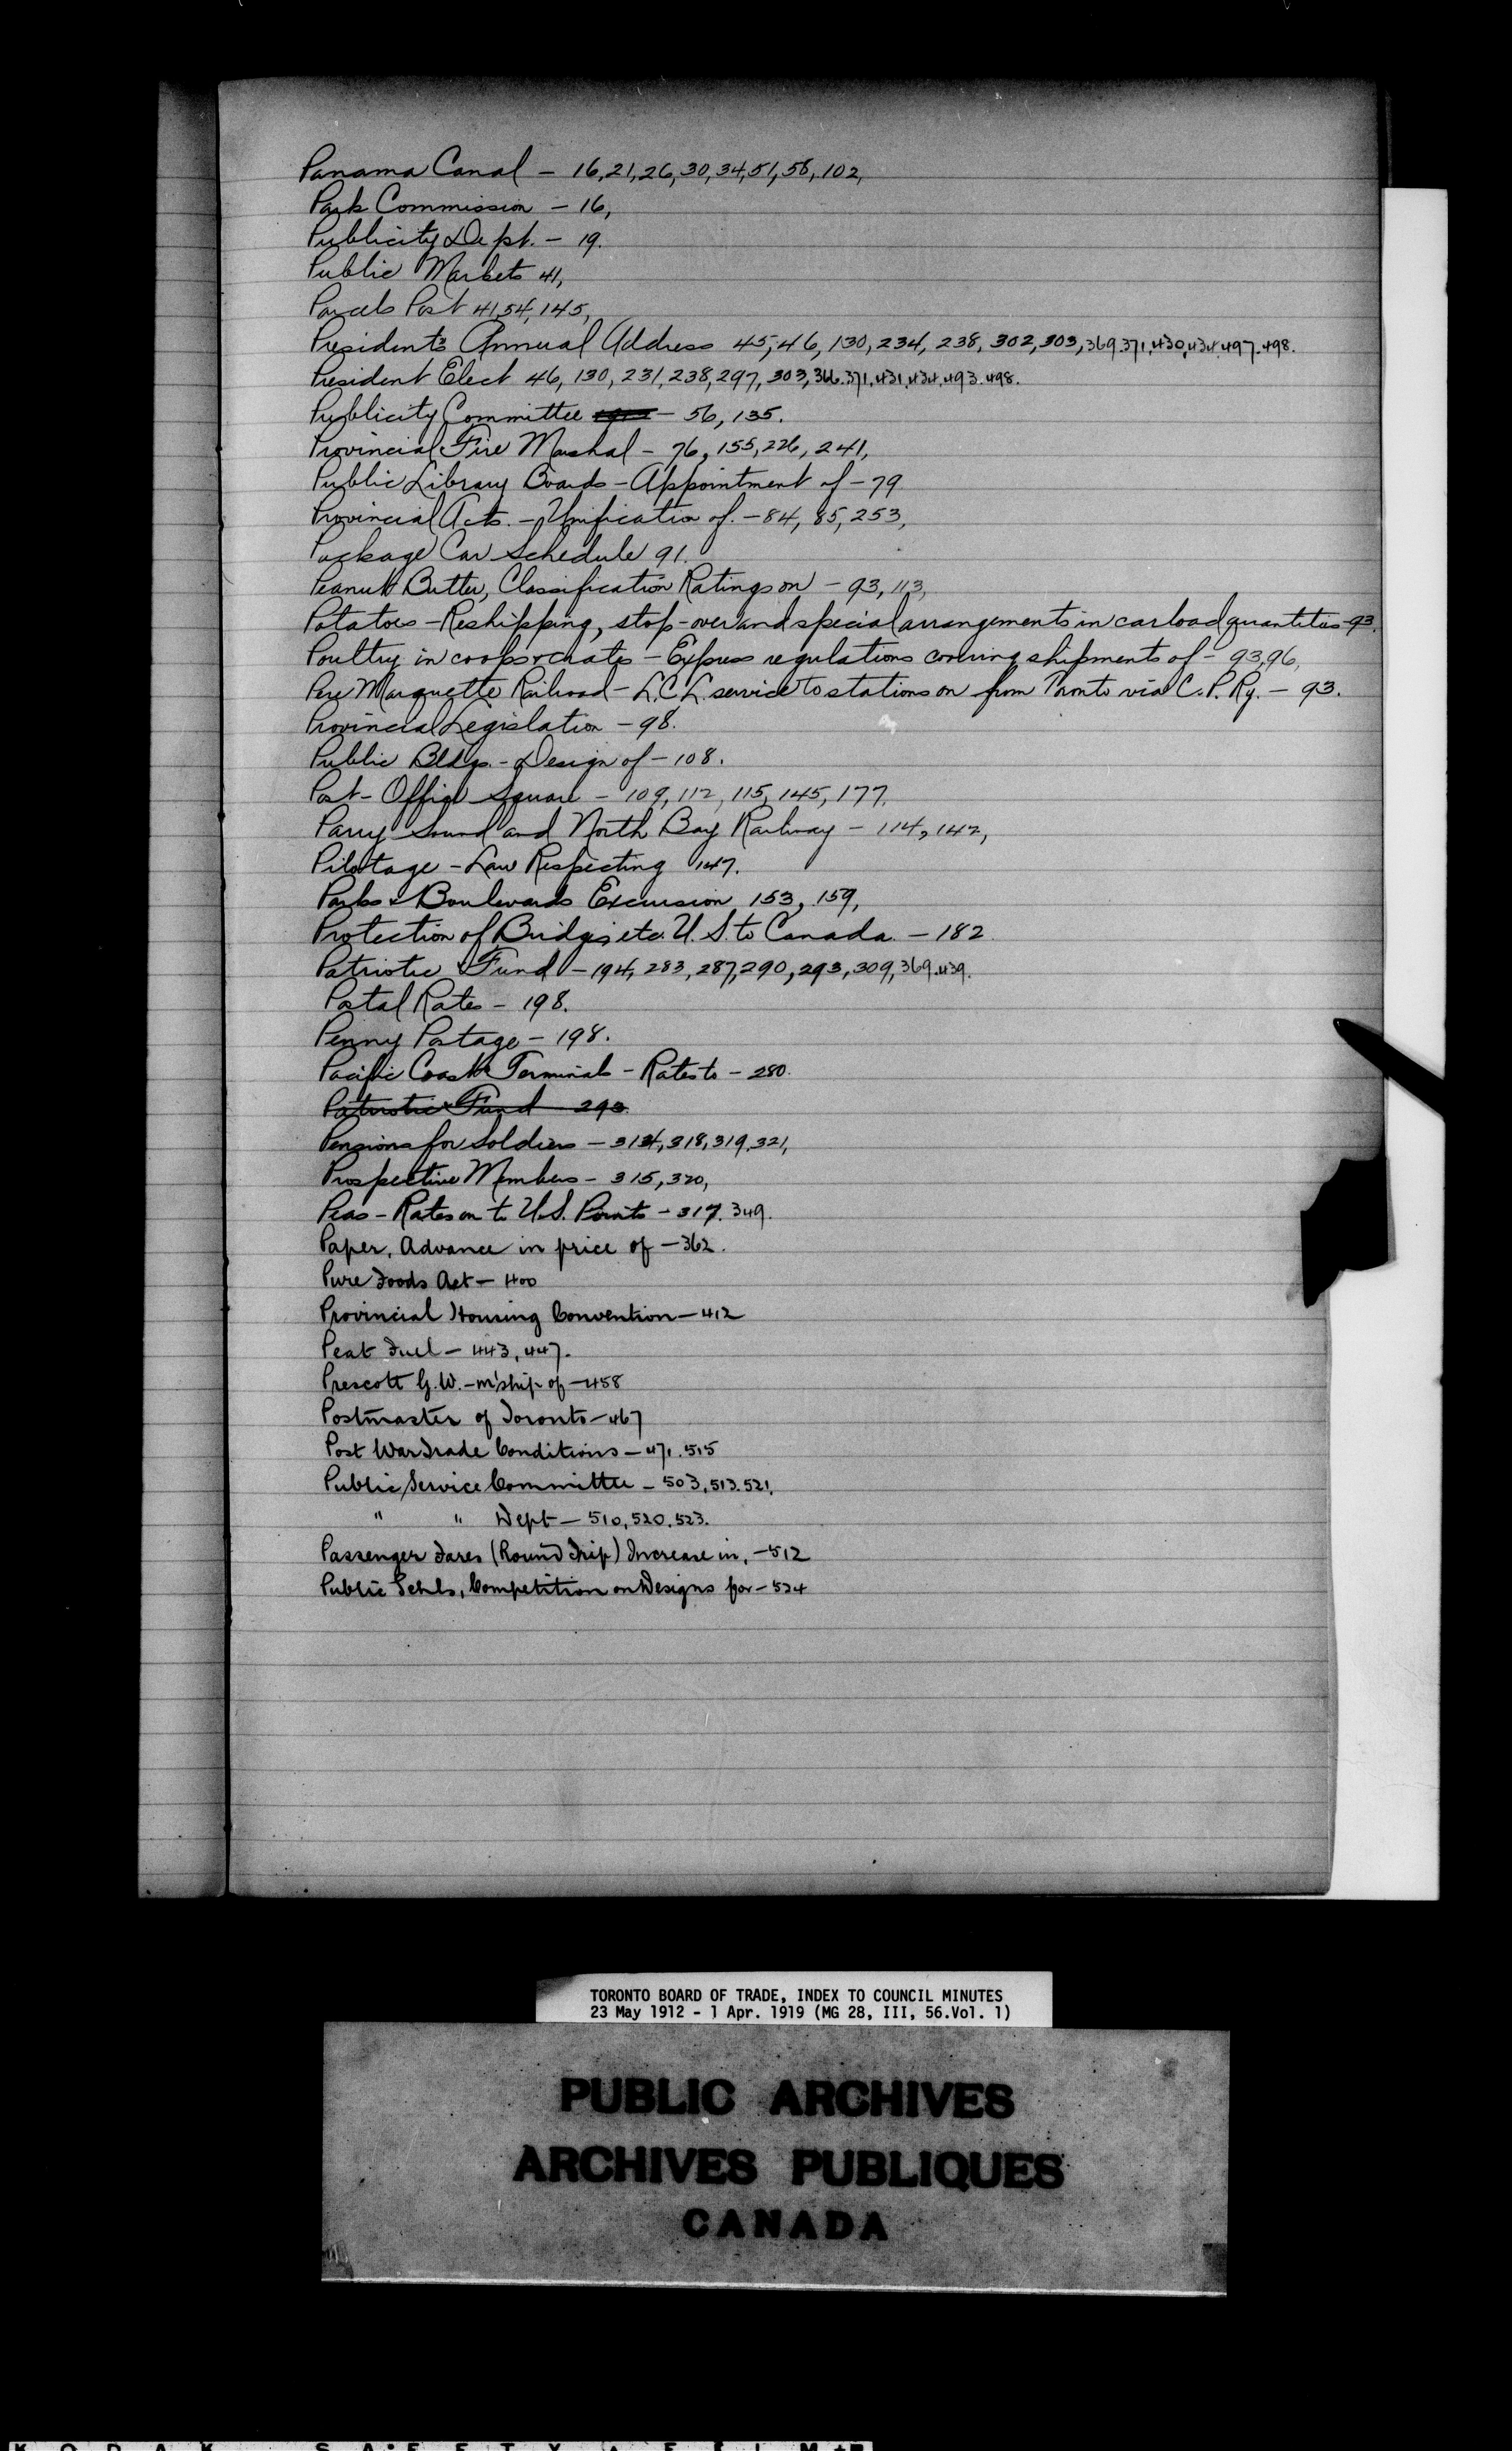 Panama Canal - 16, 21, 26, 30, 34, 51, 58, 102,
Park Commission - 16,
Publicity Dept. - 19.
Public Markets 41,
Parcels Post 41, 54, 145,
President's Annual Address 45, 46, 130, 234, 238, 302, 303, 369. 371, 430, 434. 497. 498.
President Elect 46, 130, 231, 238, 297, 303, 366. 371, 431, 434, 493. 498.
Publicity Committee - 56, 135.
Provincial Fire Marshal - 76, 155, 226, 241,
Public Library Boards - Appointment of - 79
Provincial Acts. - Unification of. - 84, 85, 253,
Package Car Schedule 91.
Peanut Butter, Classification Ratings on - 93, 113,
Potatoes - Reshipping, stop-over and special arrangements in carload quantities - 93.
Poultry in coops & crates - Express regulations covering shipments of - 93, 96,
Pere Marquette Railroad - L.C.L. service to stations on from Toronto via C.P. Ry. - 93.
Provincial Legislation - 98.
Public Bldgs. - Design of - 108.
Post-Office Square - 109, 112, 115, 145, 177,
Parry Sound and North Bay Railway - 114, 142,
Pilotage - Law Respecting 147.
Parks & Boulevards Excursion 153, 159,
Protection of Bridges etc. U.S. to Canada. - 182
Patriotic Fund - 194, 283, 287, 290, 293, 309, 369. 439.
Postal Rates - 198.
Penny Postage - 198.
Pacific Coast Terminals - Rates to - 280.
Patriotic Fund 293.
Pensions for Soldiers - 314, 318, 319, 321,
Prospective Members - 315, 320,
Peas - Rates on to U.S. Points - 317. 349.
Paper, Advance in price of - 362.
Pure Foods Act - 400
Provincial Housing Convention - 412
Peat Fuel - 443, 447.
Prescott G.W. - m'ship of - 458
Postmaster of Toronto - 467
Post War Trade Conditions - 471. 515
Public Service Committee - 503, 513. 521,
" " Dept - 510, 520, 523.
Passenger Fares (Round Trip) Increase in, - 512
Public Schls, Competition on Designs for - 524
TORONTO BOARD OF TRADE, INDEX TO COUNCIL MINUTES
23 May 1912 - 1 Apr. 1919 (MG 28, III, 56.Vol. 1)
PUBLIC ARCHIVES
ARCHIVES PUBLIQUES
CANADA
KODAK SAFETY FILM